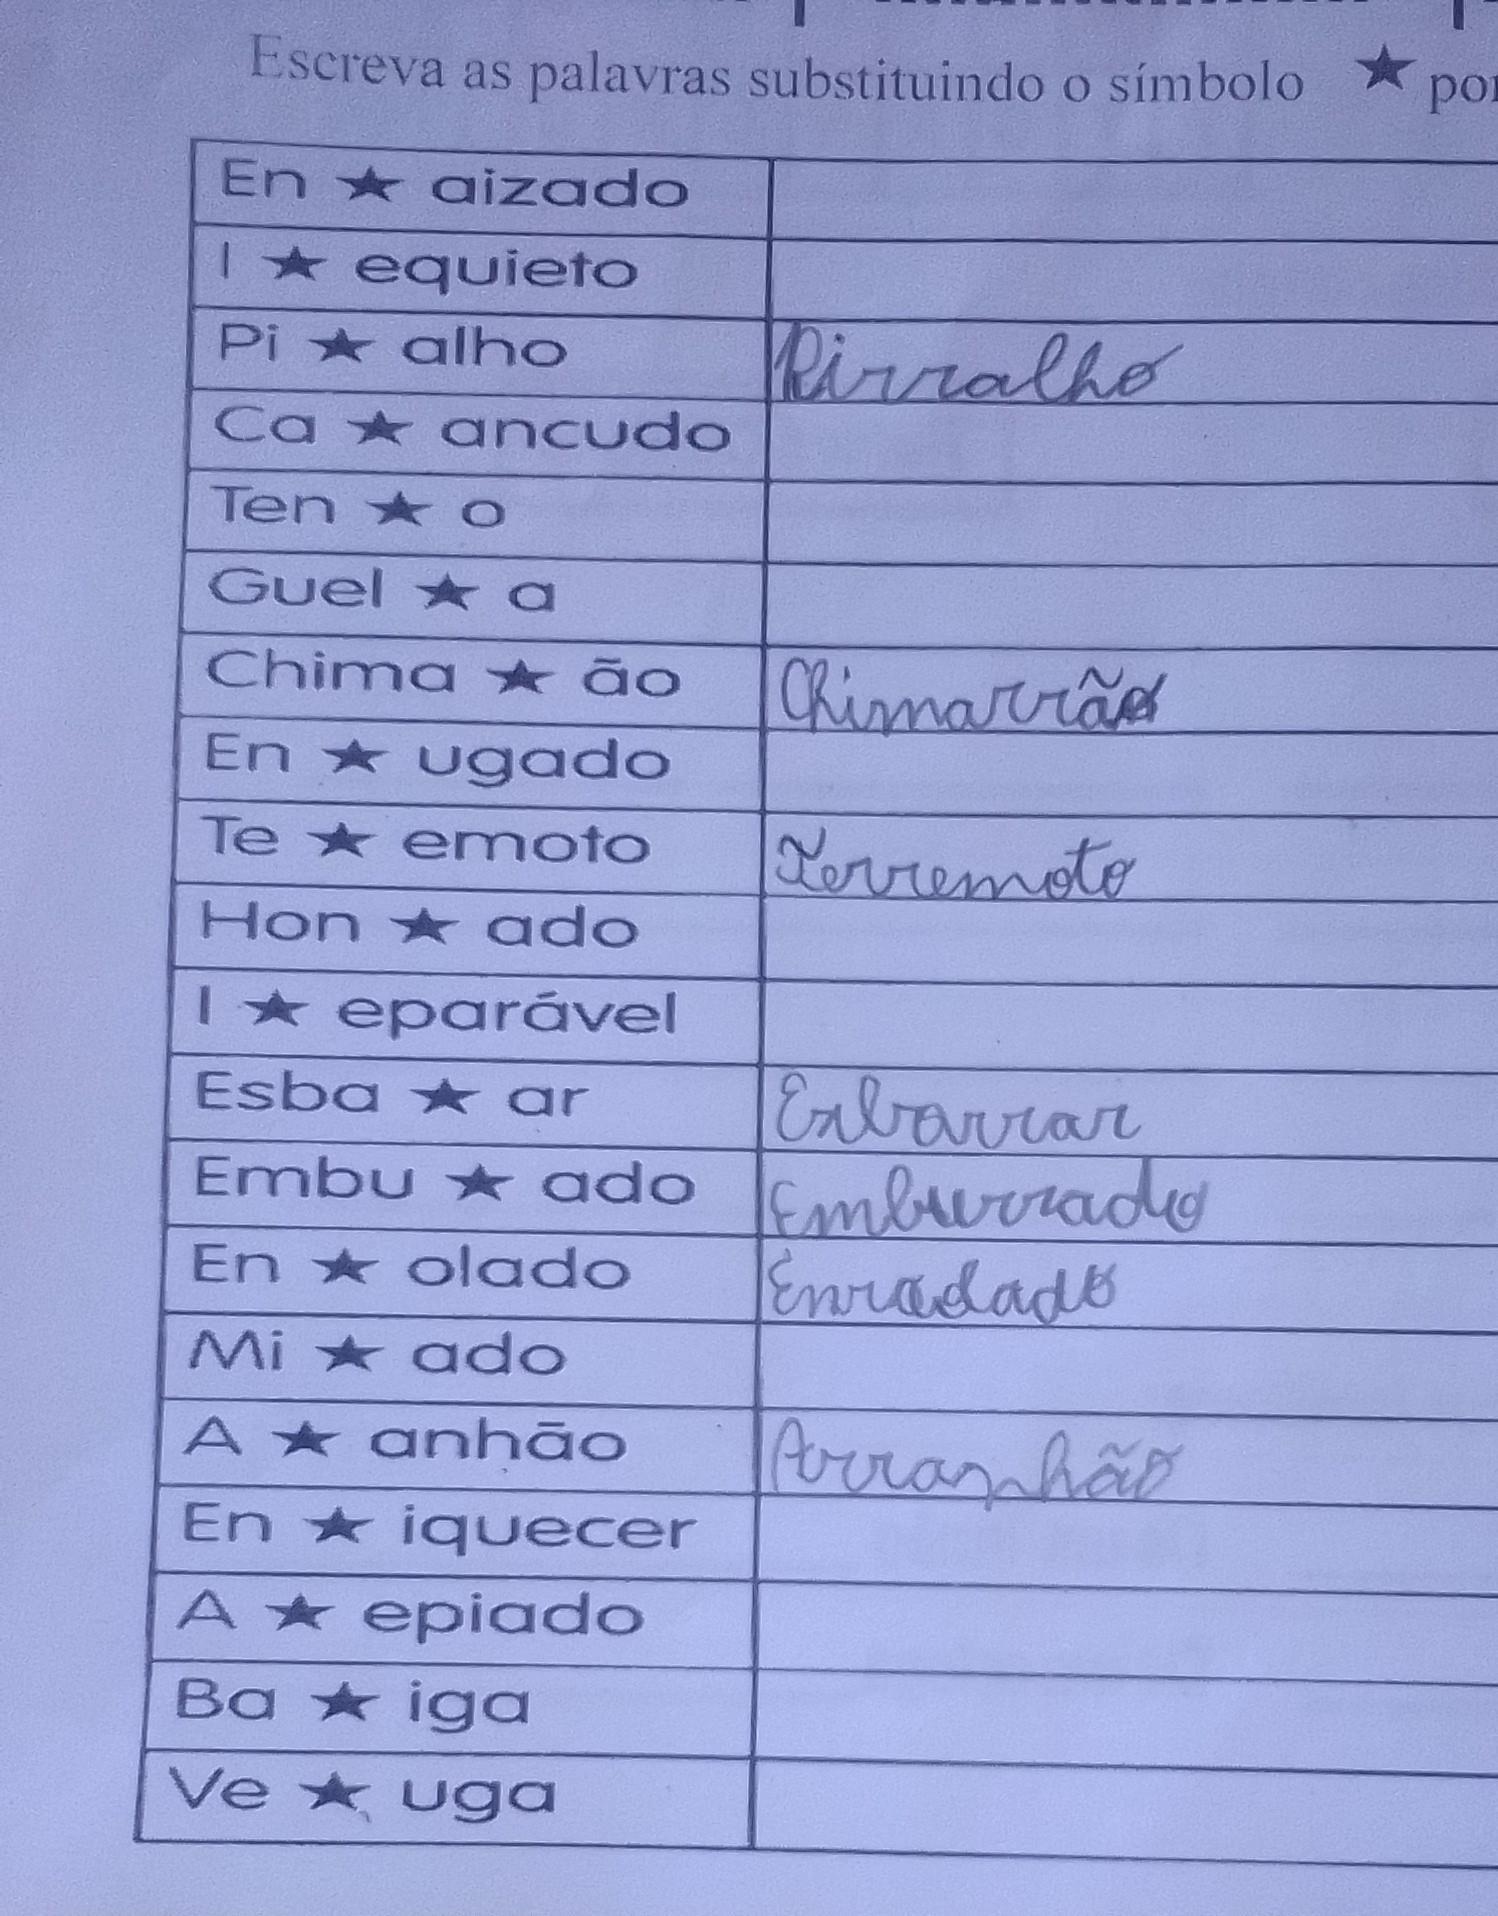 Escreva as palavras substituindo o símbolo ★ por
En ★ aizado
I ★ equieto
Pi ★ alho Pirralho
Ca ★ ancudo
Ten ★ o
Guel ★ a
Chima ★ ão Chimarrão
En ★ ugado
Te ★ emoto Terremoto
Hon ★ ado
I ★ eparável
Esba ★ ar Esbarrar
Embu ★ ado Emburrado
En ★ olado
Mi ★ ado
A ★ anhão Arranhão
En ★ iquecer
A ★ epiado
Ba ★ iga
Ve ★ uga